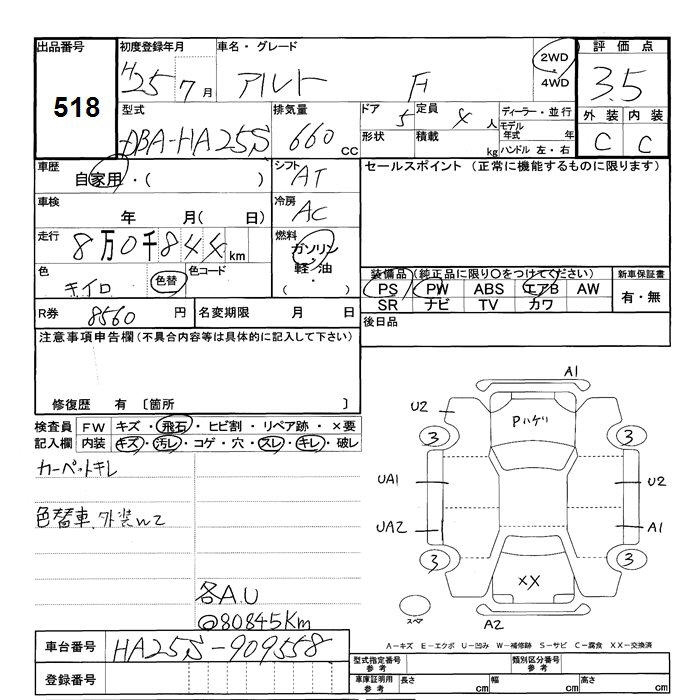 出品番号
518
初度登録年月
H25 7月
車名・グレード
アルト F
2WD
4WD
評価点
3.5
外装 内装
C C
型式
DBA-HA25S
排気量
660 cc
ドア
5
定員
4 人
形状
積載
kg
ディーラー・並行
モデル年式 年
ハンドル 左・右
車歴
自家用・( )
シフト
AT
車検
年 月( 日)
冷房
AC
走行
8万0千844km
燃料
ガソリン
軽・油
( ・ )
色
キイロ
色替
色コード
R券
8560 円
名変期限
月 日
セールスポイント (正常に機能するものに限ります)
装備品 (純正品に限り○をつけてください)
PS PW ABS エアB AW
SR ナビ TV カワ
新車保証書
有・無
後日品
注意事項申告欄(不具合内容等は具体的に記入して下さい)
修復歴 有 〔箇所 〕
検査員
記入欄
FW キズ・飛石・ヒビ割・リペア跡・×要
内装 キズ・汚レ・コゲ・穴・スレ・キレ・破レ
カーペットキレ
色替車、外装W2
各A.U
@80845Km
A1
U2
Pハゲリ
3 3
UA1
U2
UA2
A1
3 3
XX
スペア
A2
A-キズ E-エクボ U-凹み W-補修跡 S-サビ C-腐食 XX-交換済
車台番号
HA25S-909558
登録番号
型式指定番号
参考
類別区分番号
参考
車庫証明用
参考
長さ cm
幅 cm
高さ cm